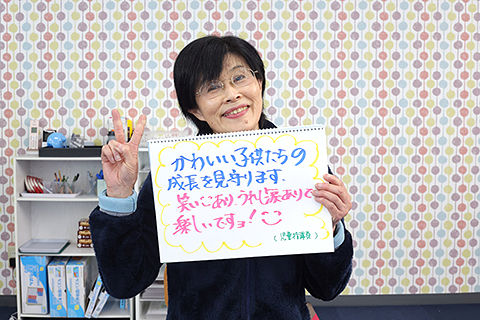 かわいい子供たちの
成長を見守ります。
笑いあり、うれし涙ありで
楽しいですョ!
(児童指導員)